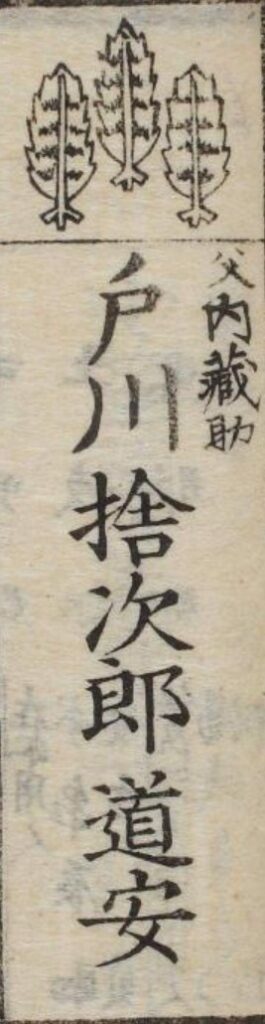 父内藏助
戸川捨次郎道安